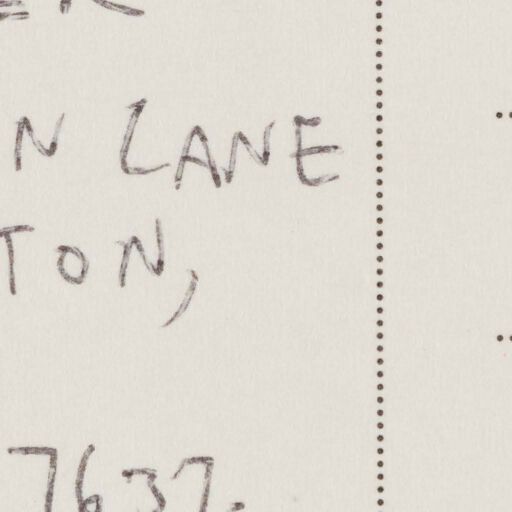 ER
N LANE
TON,
7637.